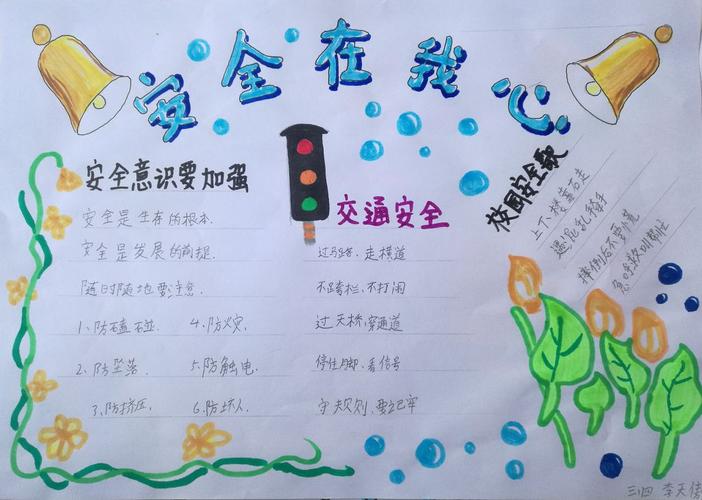 安全在我心
安全意识要加强
安全是生存的根本.
安全是发展的前提.
随时随地要注意.
1、防磕碰. 4、防火灾.
2、防坠落. 5、防触电.
3、防挤压. 6、防坏人.
交通安全
过马路、走横道
不跨栏、不打闹
过天桥、穿通道
停住脚、看信号
守规则、要记牢
校园安全歌
上下楼靠右走
遇混乱
摔倒后不要慌
急呼救
三.四 李天